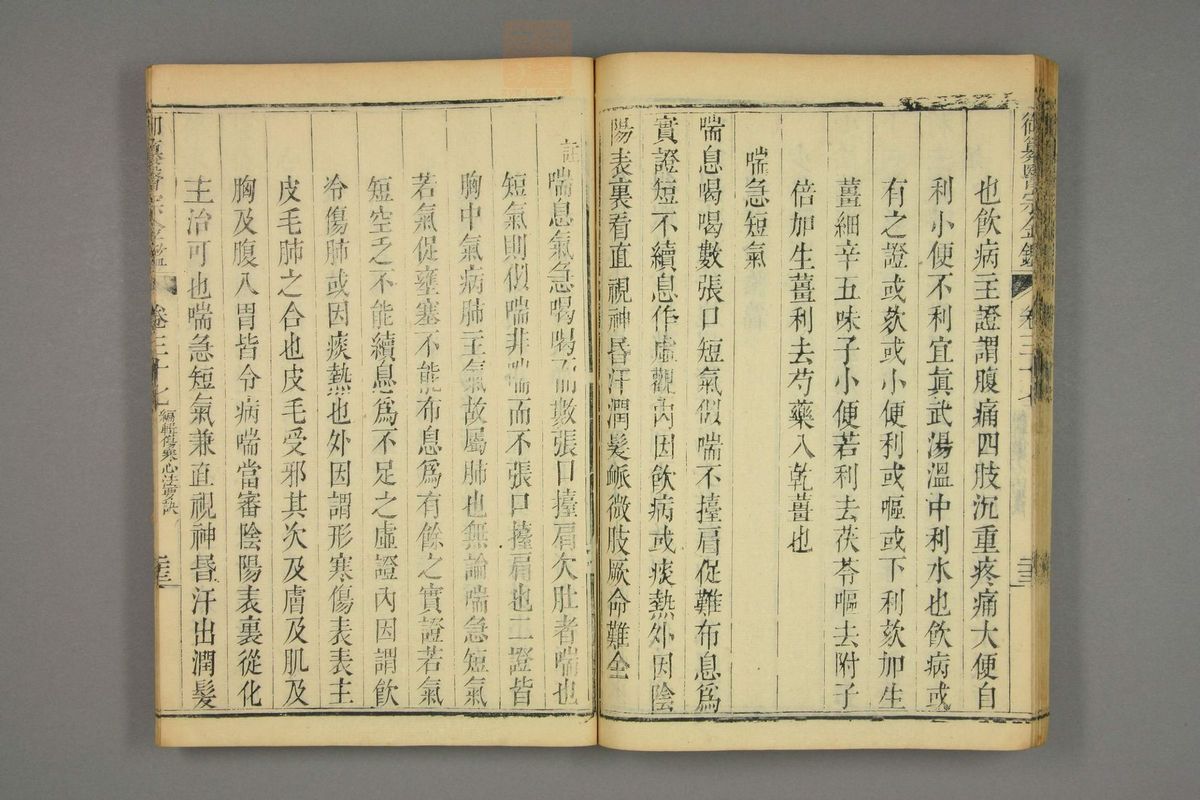 御纂醫宗金鑑 卷三十七
也飮病主證謂腹痛四肢沉重疼痛大便自
利小便不利宜眞武湯溫中利水也飮病或
有之證或欬或小便利或嘔或下利欬加生
薑細辛五味子小便若利去茯苓嘔去附子
倍加生薑利去芍藥入乾薑也
喘急短氣
喘息喝喝數張口短氣似喘不擡肩促難布息爲
實證短不續息作虛觀內因飮病或痰熱外因陰
陽表裏看直視神昏汗潤髮脈微肢厥命難全
註喘息氣急喝喝而數張口擡肩欠肚者喘也
短氣則似喘非喘而不張口擡肩也二證皆
胸中氣病肺主氣故屬肺也無論喘急短氣
若氣促壅塞不能布息爲有餘之實證若氣
短空乏不能續息爲不足之虛證內因謂飮
冷傷肺或因痰熱也外因謂形寒傷表表主
皮毛肺之合也皮毛受邪其次及膚及肌及
胸及腹入胃皆令病喘當審陰陽表裏從化
主治可也喘急短氣兼直視神昏汗出潤髮
御纂醫宗金鑑 卷三十七 編輯傷寒心法要訣